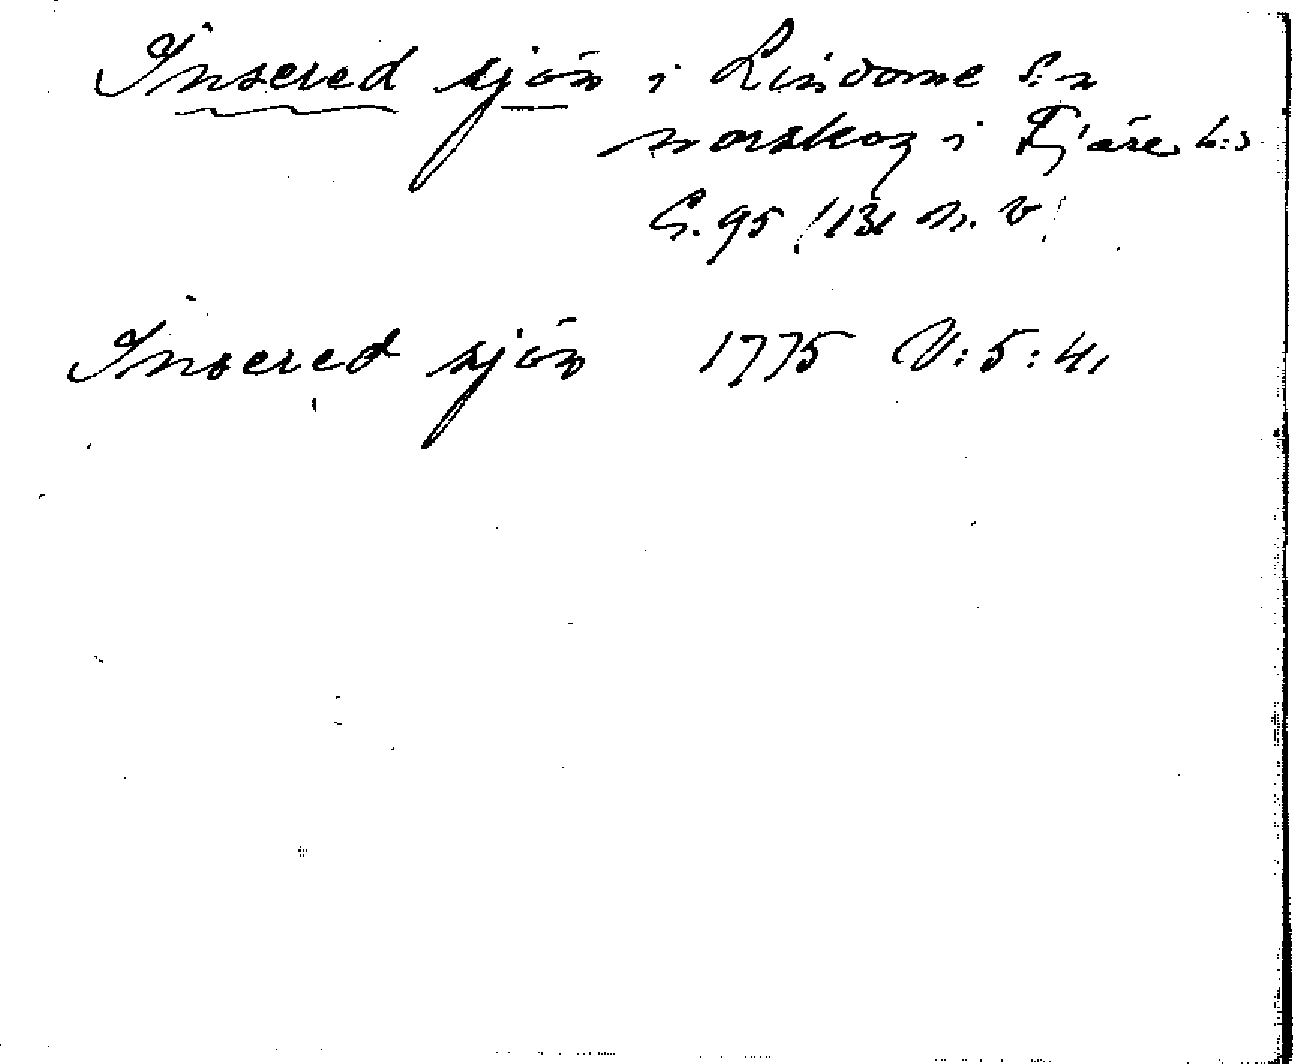 Insered sjön i Lindome s:n
norskog i Fjäre h:d
G. 95 (131 n. v)
Insered sjön 1775 V:5:4